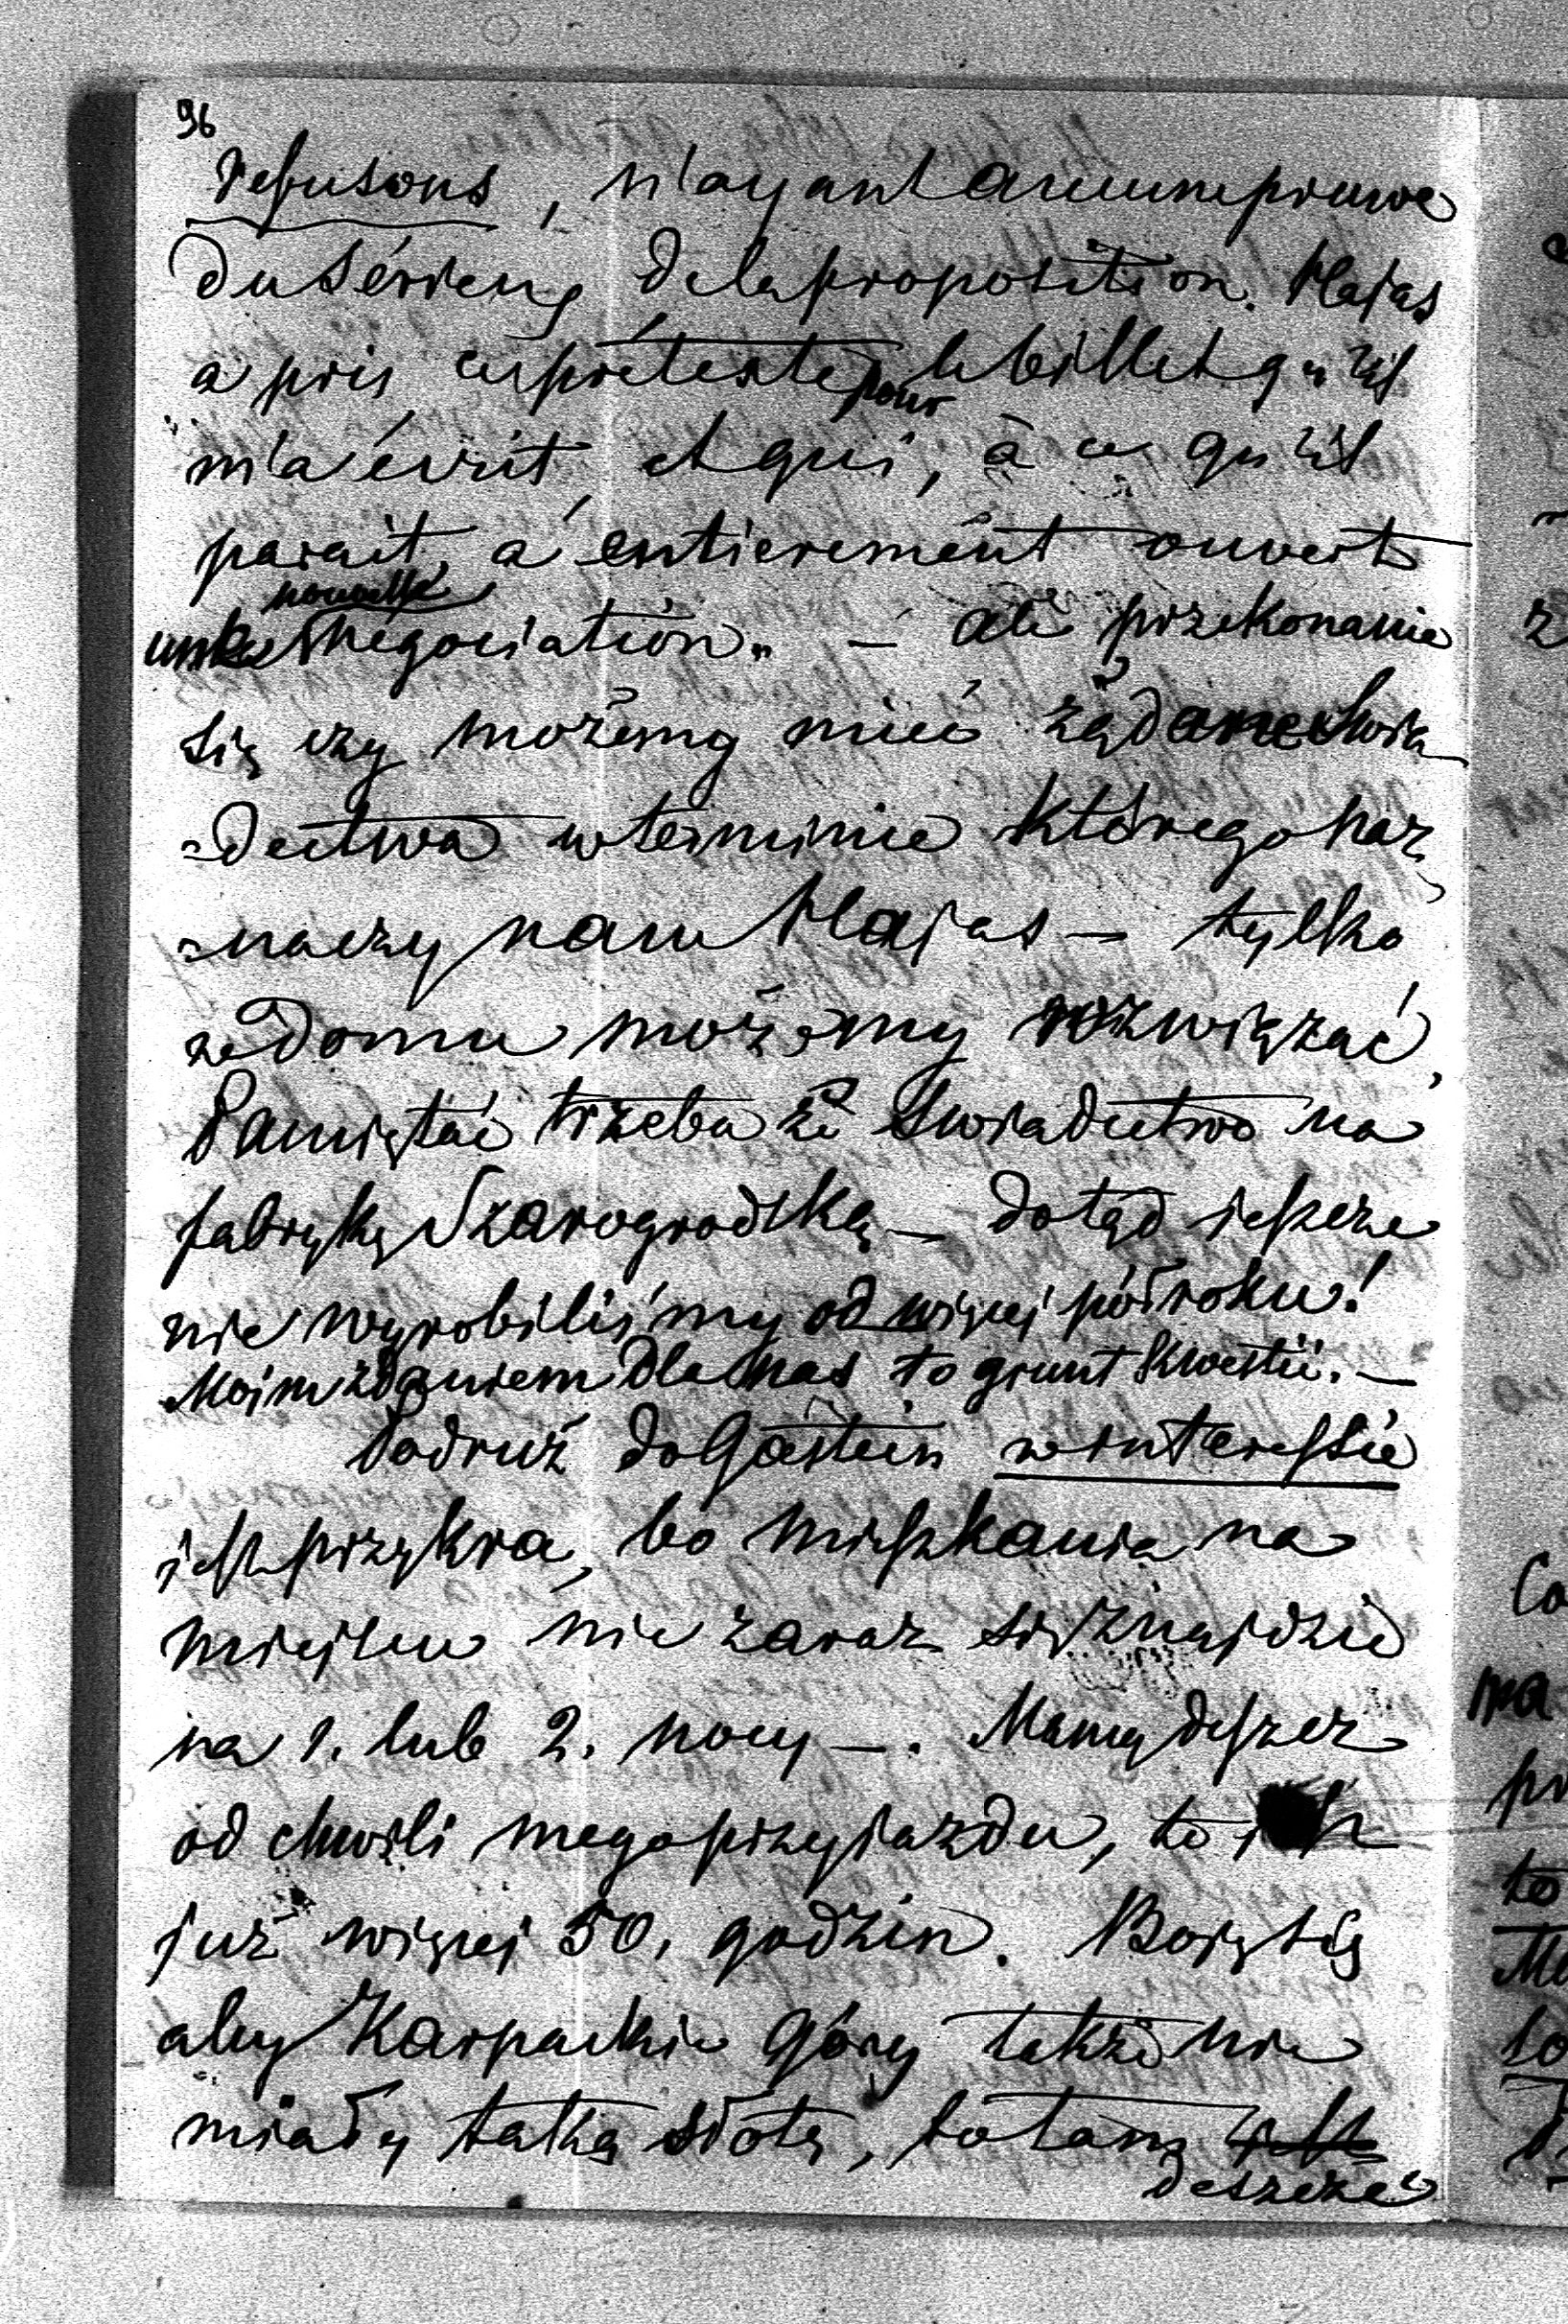 96
refusons, n'ayant aucune preuve
du sérieux de la proposition. Hajas
a pris ce prétexte pour le billet qu'il
m'a écrit, et qui, à ce qu'il
parait, a entierement ouvert
une nouvelle négociation„ — ale przekonanie
się czy możemy mieć żądane Swia
=dectwa w terminie którego naz
=naczy nam Hajas — tylko
w domu możemy rozwiązać,
Pamiętać trzeba że Swiadectwo na
fabrykę Szarogrodską — dotąd jeszcze
nie wyrobiliśmy od więcej półroku!
Moim zdaniem dla nas to grunt kwestii. —
Podruż do Gastein w interessie
jest przykra, bo mieszkania na
miejscu nie zaraz się znajdzie
na 1. lub 2. nocy —. Mamy deszcz
od chwili mego przyjazdu, to
już więcej 50. godzin. Boję się
aby Karpackie Góry także nie
miały taką słotę, bo tam jest
deszcze